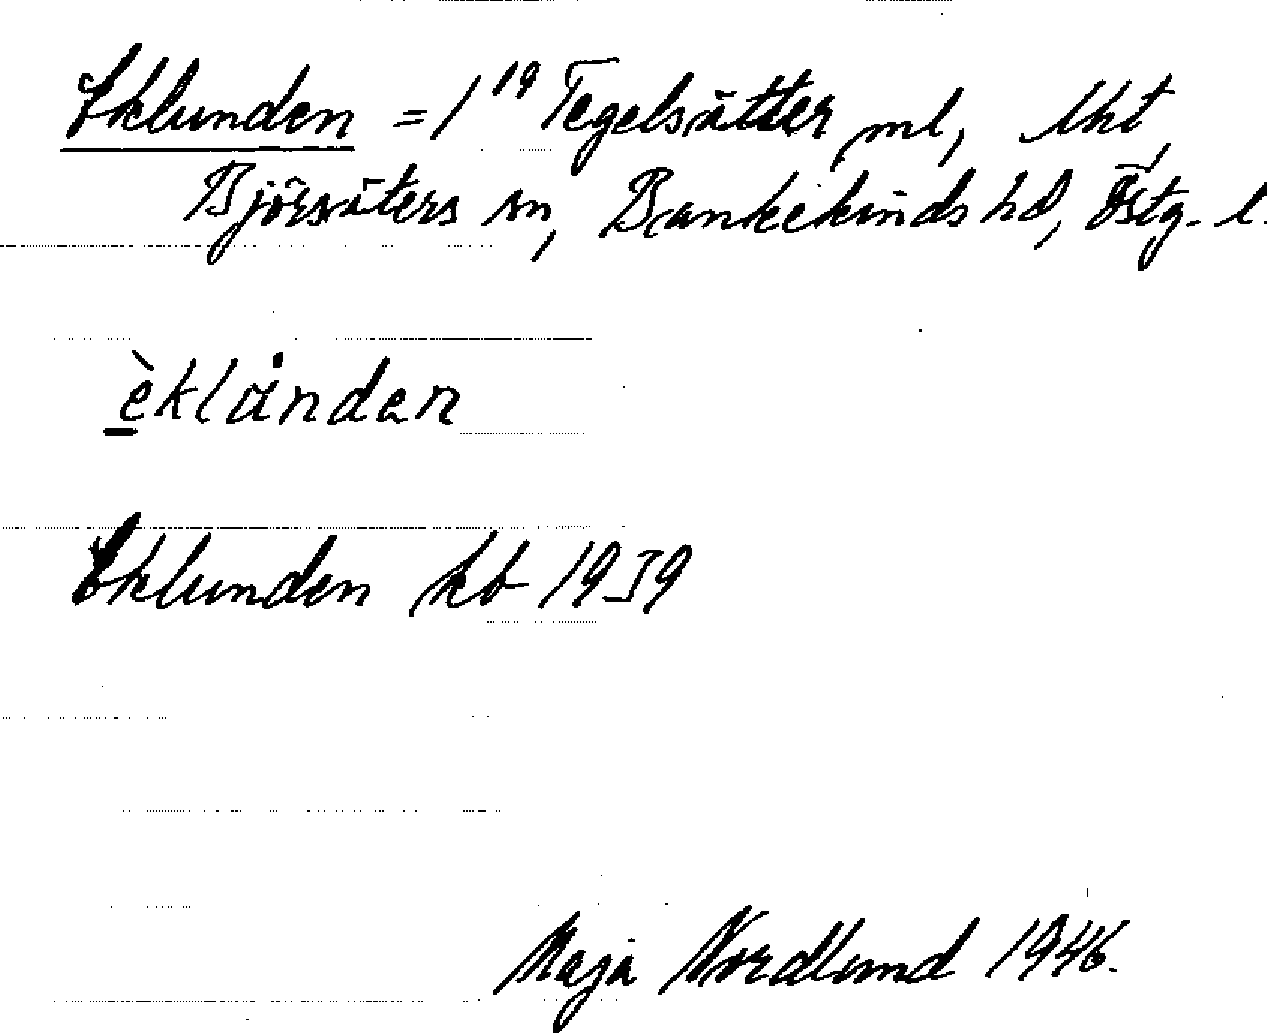 Eklunden = 1¹⁹ Tegelsätter ml, lht
Björsäters sn, Bankekinds hd, Östg. l.
èklånden
Eklunden kb 1939
Maja Nordlund 1946.